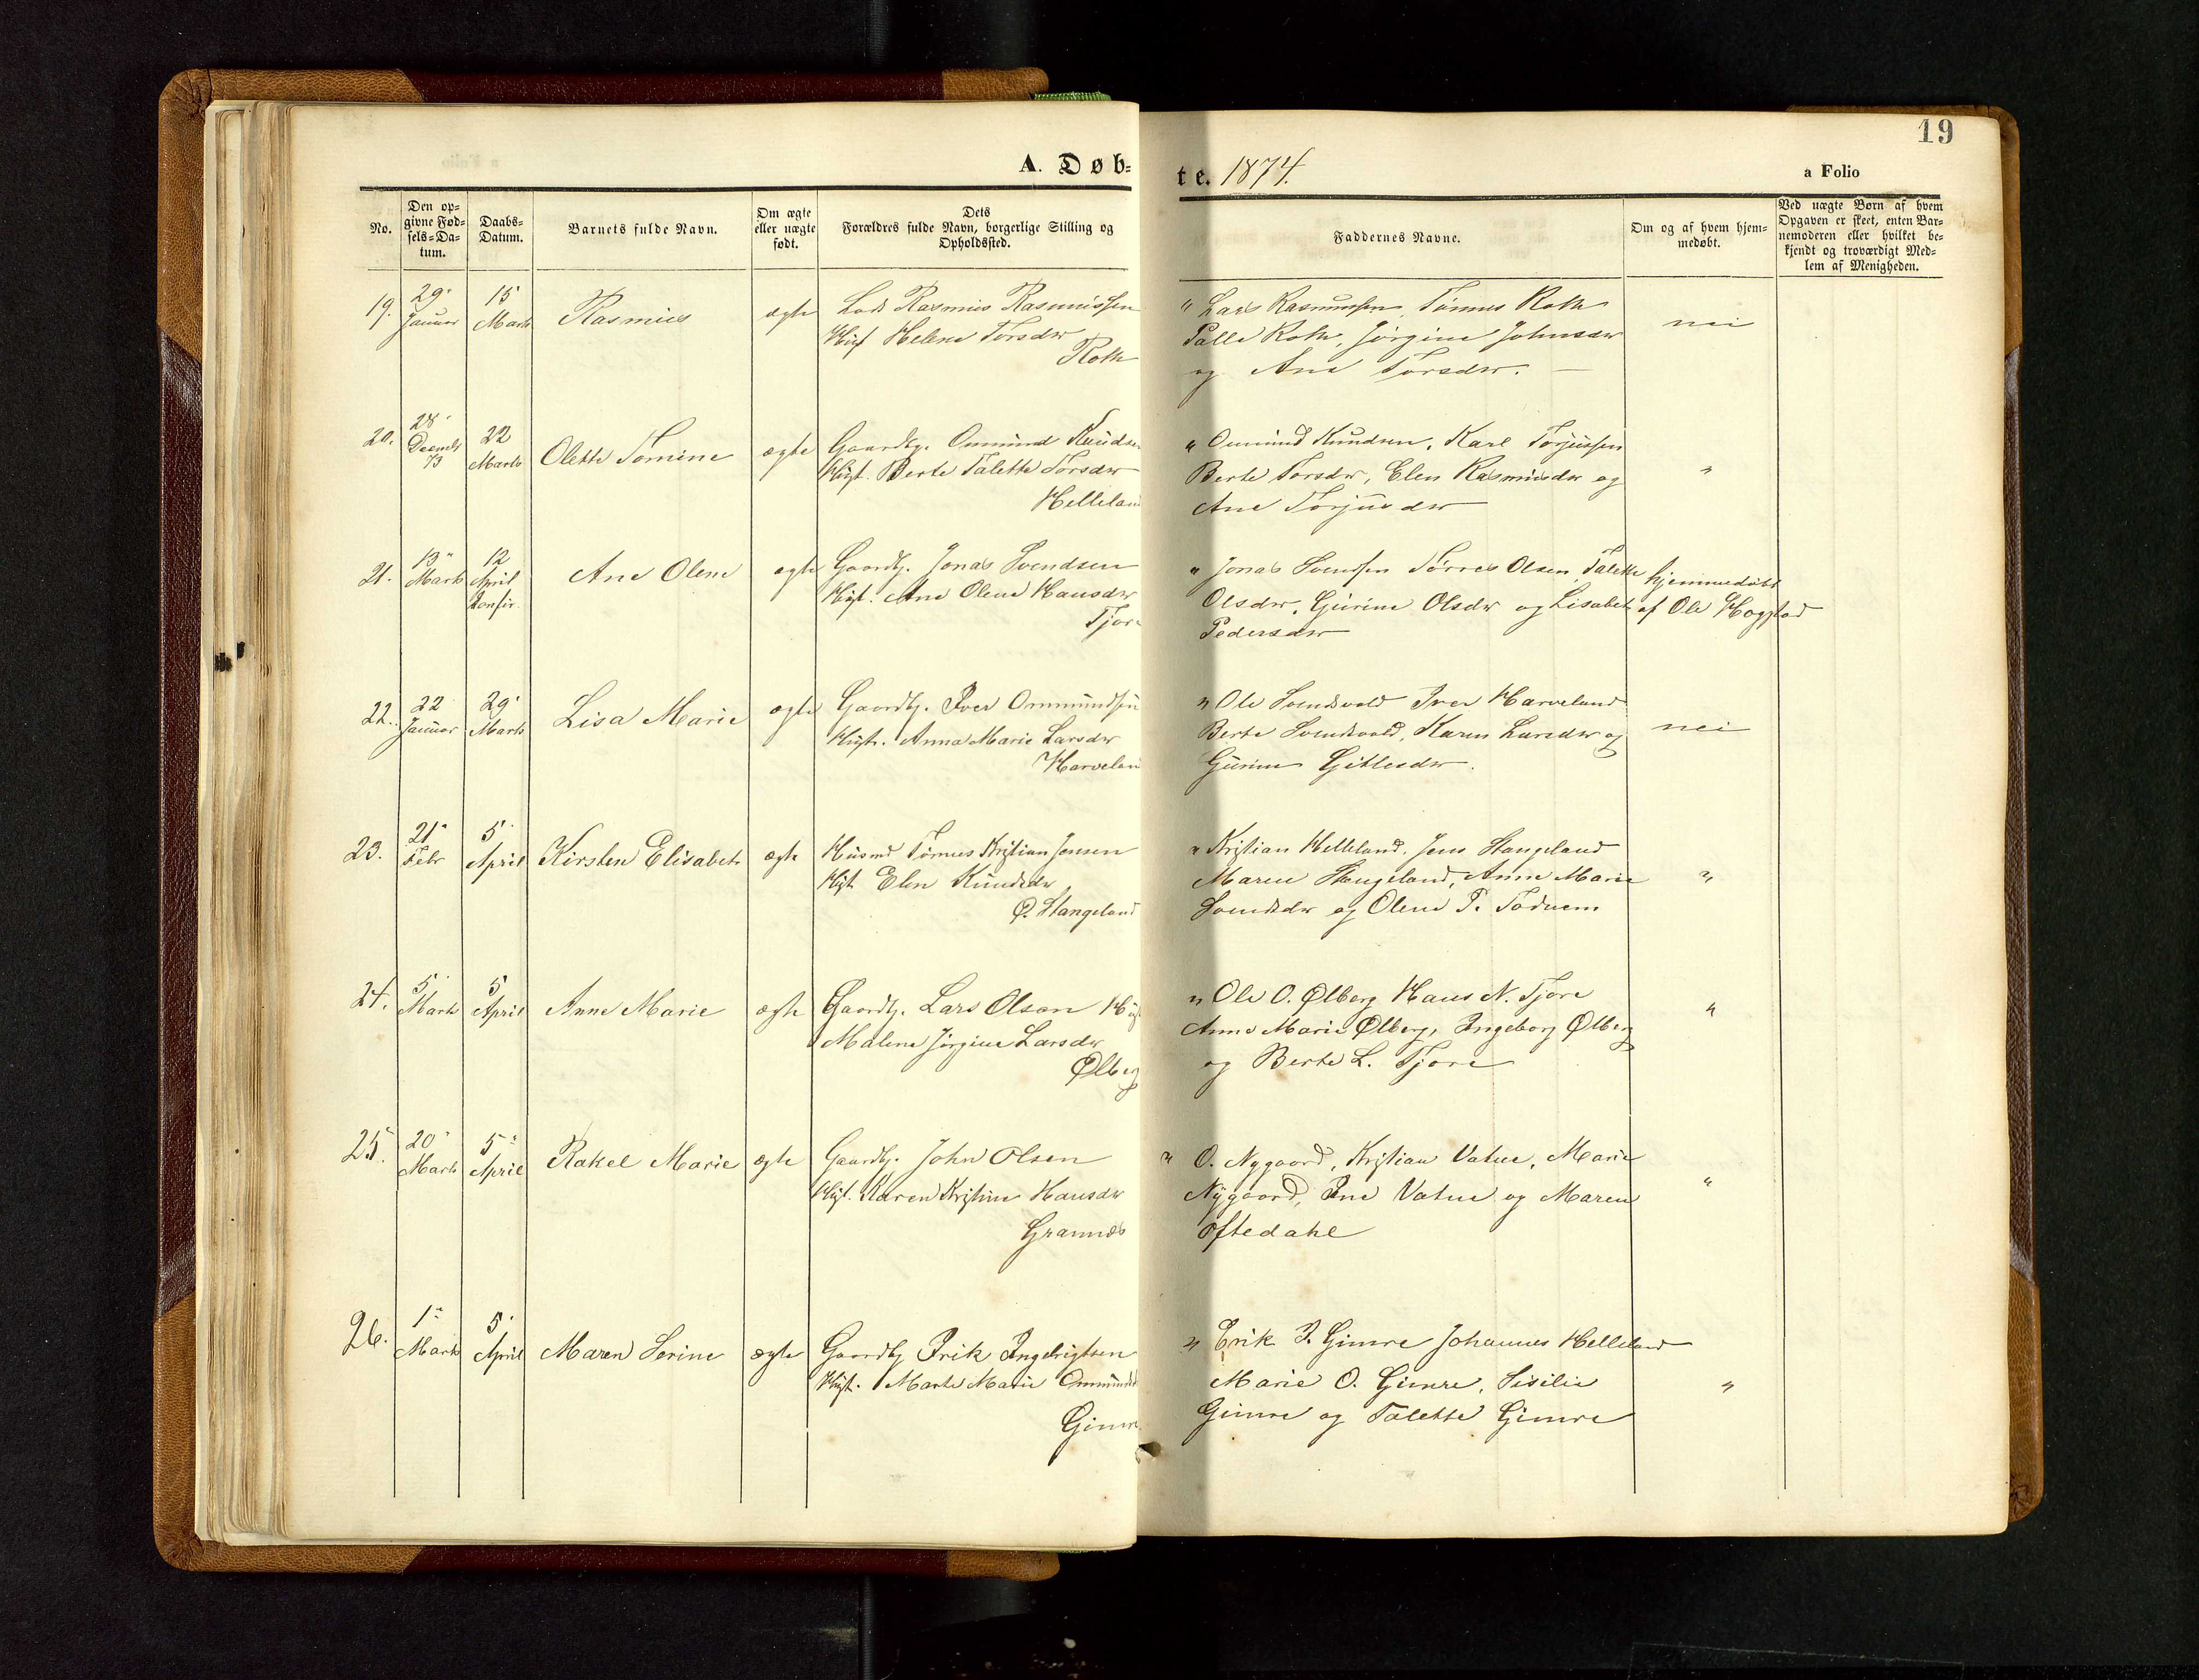 19
A. Døb-
te. 1874.
a Folio
No.
Den op-
givne Fød-
sels-Da-
tum.
Daabs-
Datum.
Barnets fulde Navn.
Om ægte
eller uægte
født.
Dets
Forældres fulde Navn, borgerlige Stilling og
Opholdssted.
Faddernes Navne.
Om og af hvem hjem-
medøbt.
Ved uægte Børn af hvem
Opgaven er skeet, enten Bar-
nemoderen eller hvilket be-
kjendt og troværdigt Med-
lem af Menigheden.
19.
29
Januar
15
Marts
Rasmus
ægte
Rasmus Rasmussen
Helene Torsdtr
Roth
" Lars Rasmussen, Tønnes Roth
Palle Roth, Jørgine Johnsdtr
og Ane Torsdtr. —
nei
20.
28
Decembr
73
22
Marts
Olette Tomine
ægte
Gaardbr. Ommund Knudsen
Hust. Berte Talette Torsdtr
Helleland
" Ommund Knudsen, Karl Torjussen
Berte Torsdtr, Elen Rasmusdtr og
Ane Torjusdtr
"
21.
13
Marts
12
April
Konfir.
Ane Olene
ægte
Gaardbr. Jonas Svendsen
Hust. Ane Olene Hansdtr
Tjore
" Jonas Svendsen Tørres Olsen, Talette
Olsdtr, Gurine Olsdtr og Lisabet
Pedersdtr
hjemmedøbt
af Ole Hogstad
22.
22
Januar
29
Marts
Lisa Marie
ægte
Gaardbr. Iver Ommundsen
Hustr. Anna Marie Larsdtr
Harveland
" Ole Svendsvold Iver Harveland
Berte Svendsvold, Karen Larsdtr og
Gurine Gitlesdtr.
nei
23.
21
Febr
5
April
Kirsten Elisabet
ægte
Husmd Tønnes Kristian Jensen
Hust. Elen Knudsdtr
Ø. Stangeland
" Kristian Helleland, Jens Stangeland
Maren Stangeland, Anne Marie
Svendsdtr og Olene P. Todnem
"
24.
5
Marts
5
April
Anne Marie
ægte
Gaardbr. Lars Olsen Hust
Malene Jørgine Larsdtr
Ølberg
" Ole O. Ølberg Hans N. Tjore
Anne Marie Ølberg, Ingeborg Ølberg
og Berte L. Tjore
"
25.
20
Marts
5
April
Rakel Marie
ægte
Gaardbr. John Olsen
Hust. Karen Kristine Hansdtr
Grannes
" O. Nygaard, Kristian Vatne, Marie
Nygaard, Ine Vatne og Maren
Oftedahl
"
26.
1
Marts
5
April
Maren Serine
ægte
Gaardbr Erik Ingebrigtsen
Hust. Marte Marie Ommundsd
Gimre
" Erik I. Gimre Johannes Helleland
Marie O. Gimre, Sisilie
Gimre og Talette Gimre
"